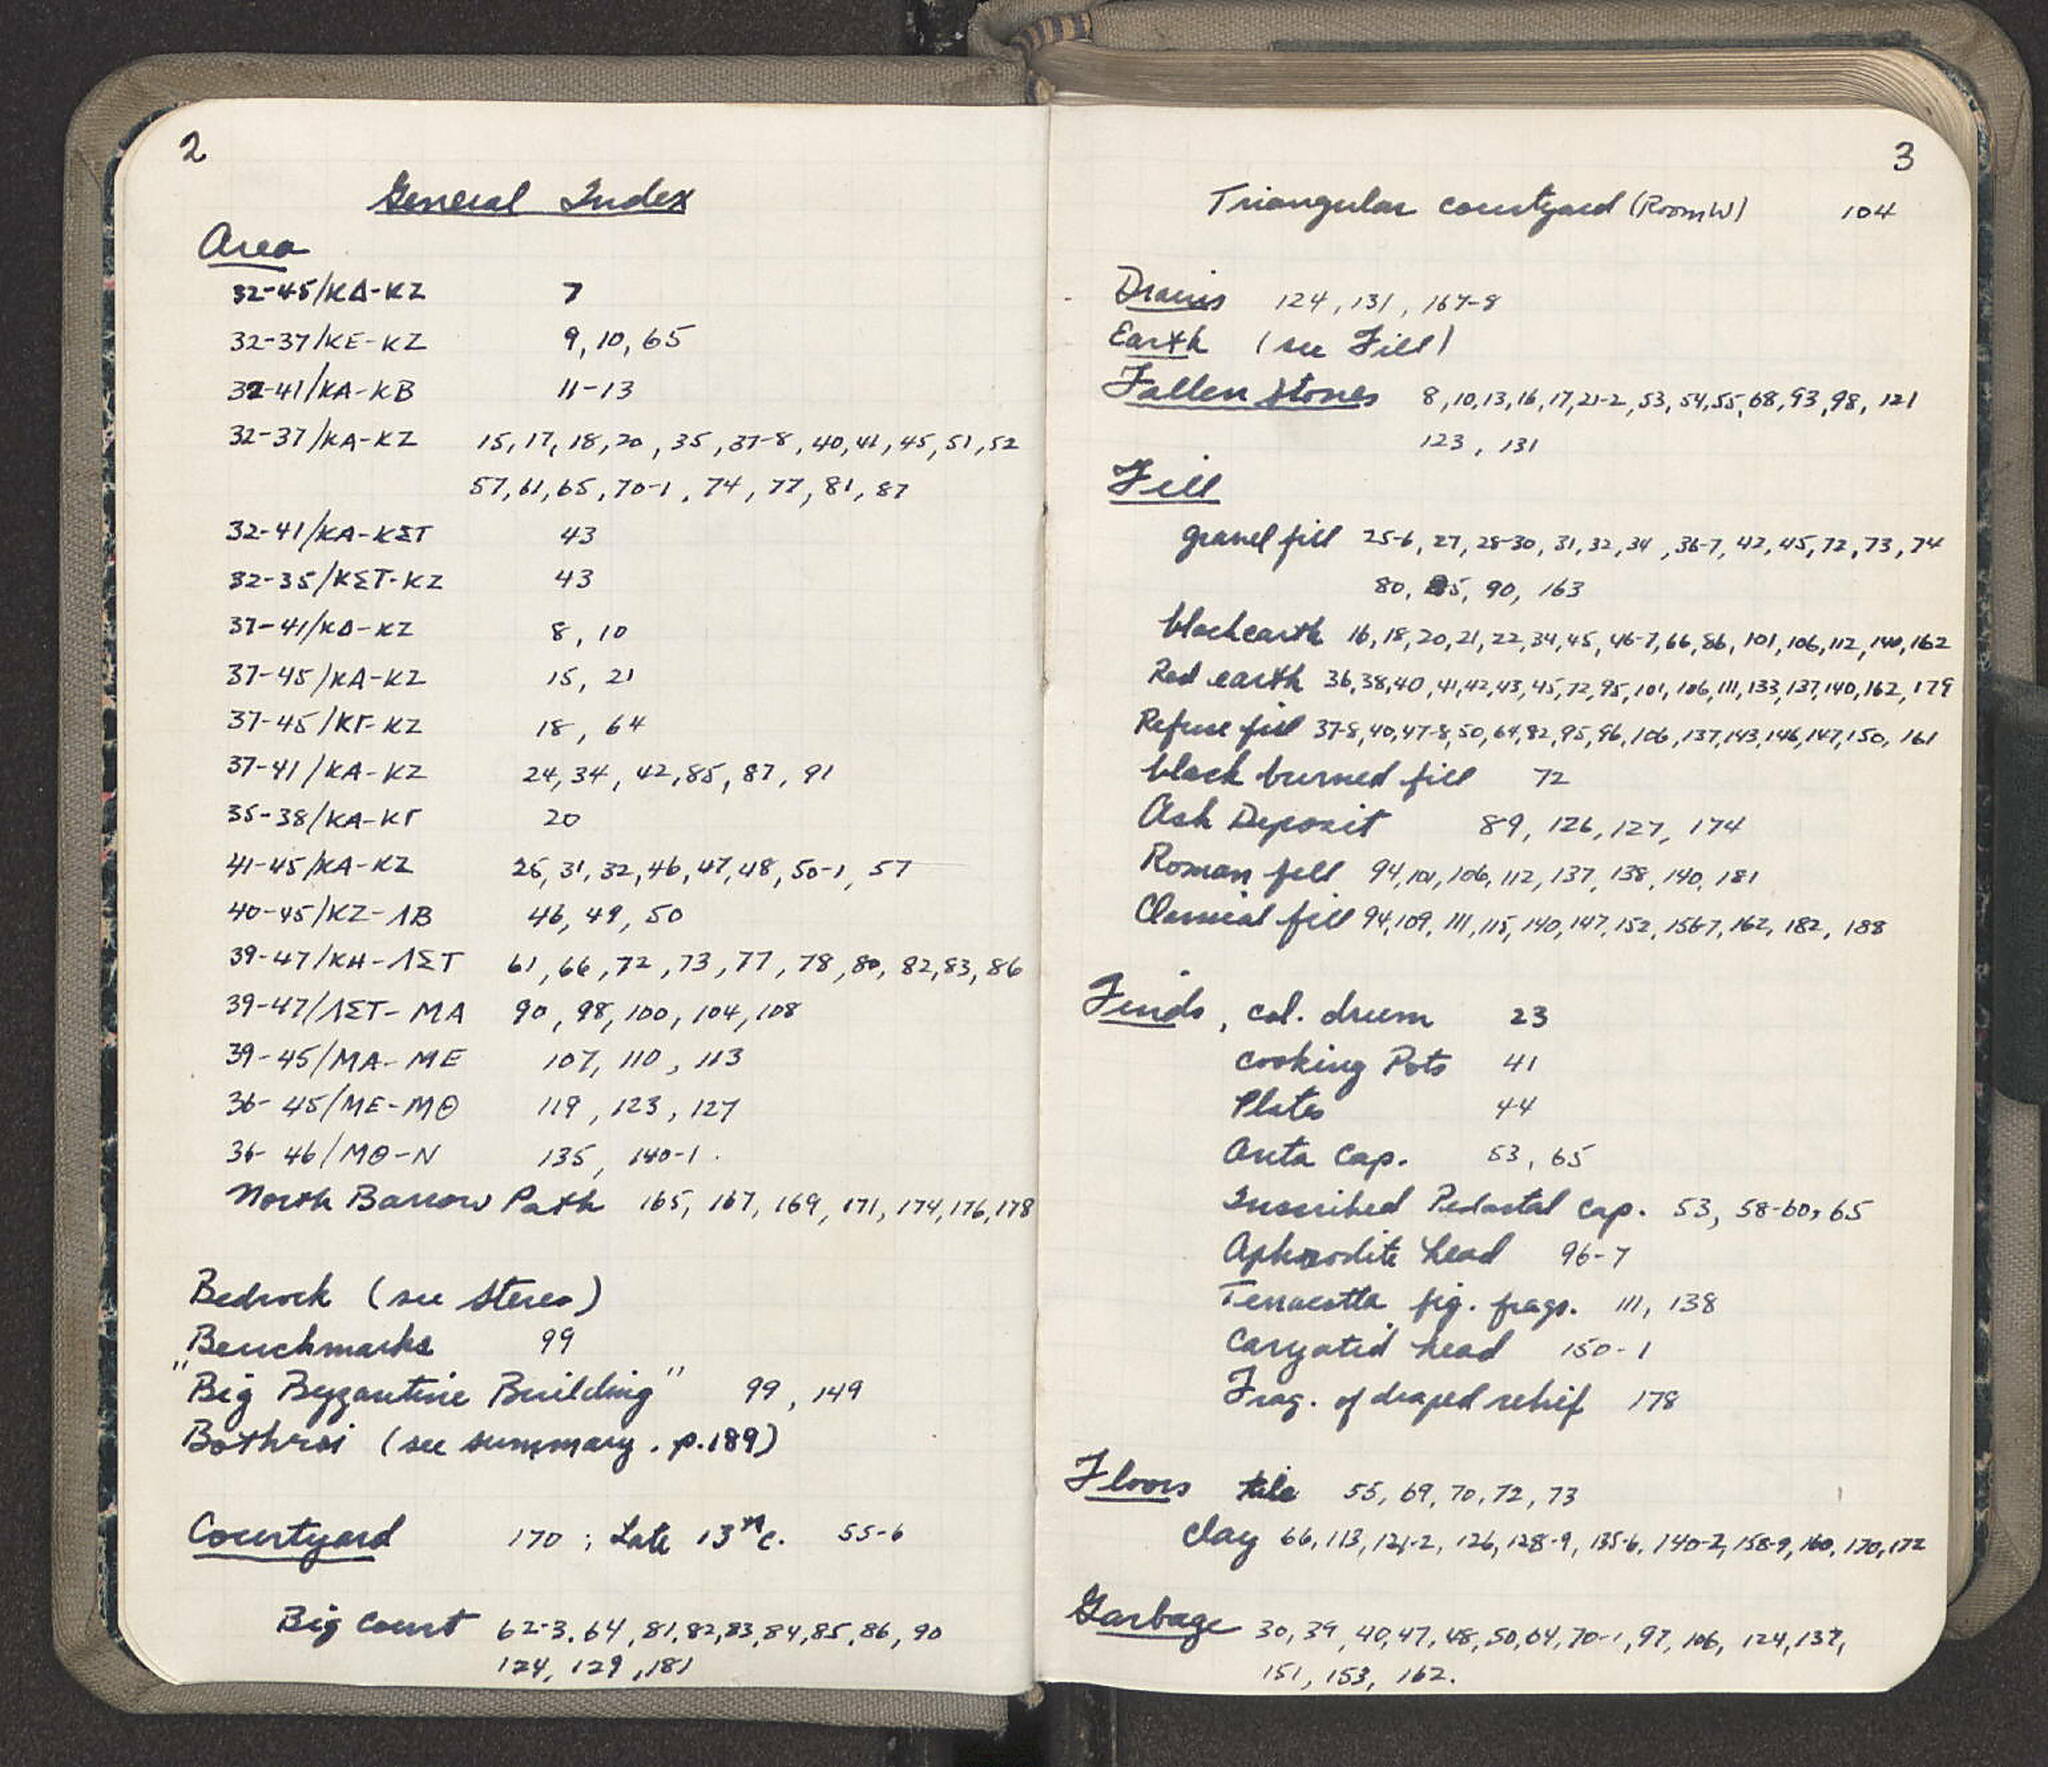 2
General Index
Area
32-45/ΚΔ-ΚΖ 7
32-37/ΚΕ-ΚΖ 9, 10, 65
32-41/ΚΑ-ΚΒ 11-13
32-37/ΚΑ-ΚΖ 15, 17, 18, 20, 35, 37-8, 40, 41, 45, 51, 52
57, 61, 65, 70-1, 74, 77, 81, 87
32-41/ΚΑ-ΚΣΤ 43
32-35/ΚΣΤ-ΚΖ 43
37-41/ΚΔ-ΚΖ 8, 10
37-45/ΚΑ-ΚΖ 15, 21
37-45/ΚΓ-ΚΖ 18, 64
37-41/ΚΑ-ΚΖ 24, 34, 42, 85, 87, 91
35-38/ΚΑ-ΚΓ 20
41-45/ΚΑ-ΚΖ 25, 31, 32, 46, 47, 48, 50-1, 57
40-45/ΚΖ-ΛΒ 46, 49, 50
39-47/ΚΗ-ΛΣΤ 61, 66, 72, 73, 77, 78, 80, 82, 83, 86
39-47/ΛΣΤ-ΜΑ 90, 98, 100, 104, 108
39-45/ΜΑ-ΜΕ 107, 110, 113
36-45/ΜΕ-ΜΘ 119, 123, 127
36-46/ΜΘ-Ν 135, 140-1.
North Barrow Path 165, 167, 169, 171, 174, 176, 178
Bedrock (see Stereo)
Benchmarks 99
"Big Byzantine Building" 99, 149
Bothroi (see summary. p.189)
Courtyard 170; Late 13th c. 55-6
Big Court 62-3, 64, 81, 82, 83, 84, 85, 86, 90
124, 129, 181
3
Triangular courtyard (Room W) 104
Drains 124, 131, 167-8
Earth (see Fill)
Fallen Stones 8, 10, 13, 16, 17, 21-2, 53, 54, 55, 68, 93, 98, 121
123, 131
Fill
gravel fill 25-6, 27, 28-30, 31, 32, 34, 36-7, 42, 45, 72, 73, 74
80, 85, 90, 163
black earth 16, 18, 20, 21, 22, 34, 45, 46-7, 66, 86, 101, 106, 112, 140, 162
Red earth 36, 38, 40, 41, 42, 43, 45, 72, 95, 101, 106, 111, 133, 137, 140, 162, 179
Refuse fill 37-8, 40, 47-8, 50, 64, 82, 95, 96, 106, 137, 143, 146, 147, 150, 161
black burned fill 72
Ash Deposit 89, 126, 127, 174
Roman fill 94, 101, 106, 112, 137, 138, 140, 181
Classical fill 94, 109, 111, 115, 140, 147, 152, 156-7, 162, 182, 188
Finds, col. drum 23
cooking Pots 41
Plates 44
Anta Cap. 53, 65
Inscribed Pedastal Cap. 53, 58-60, 65
Aphrodite head 96-7
Terracotta fig. frags. 111, 138
Caryatid head 150-1
Frag. of draped relief 178
Floors tile 55, 69, 70, 72, 73
Clay 66, 113, 121-2, 126, 128-9, 135-6, 140-2, 158-9, 160, 170, 172
Garbage 30, 39, 40, 47, 48, 50, 64, 70-1, 97, 106, 124, 137,
151, 153, 162.